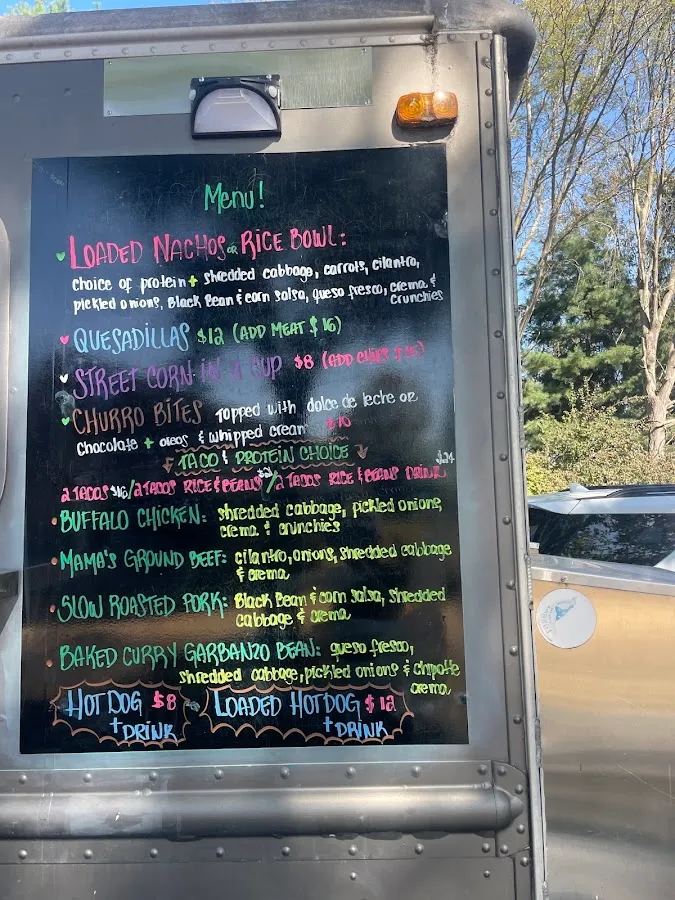 Menu!
LOADED NACHOS OR RICE BOWL:
choice of protein + shredded cabbage, carrots, cilantro,
pickled onions, Black Bean & corn salsa, queso fresco, crema &
crunchies
QUESADILLAS $12 (ADD MEAT $16)
STREET CORN IN A CUP $8 (ADD CHIPS
CHURRO BITES Topped with dolce de leche or
chocolate + oreos & whipped cream $10
TACO & PROTEIN CHOICE
2 TACOS $16/2 TACOS RICE & BEANS /2 TACOS RICE & BEANS DRINK $24
BUFFALO CHICKEN: shredded cabbage, pickled onions,
crema & crunchie's
MAMA'S GROUND BEEF: cilantro, onions, shredded cabbage
& crema
SLOW ROASTED PORK: Black Bean & corn salsa, shredded
cabbage & crema
BAKED CURRY GARBANZO BEAN: queso fresco,
shredded cabbage, pickled onions & chipotle
crema
HOT DOG $8 LOADED HOT DOG $12
+ DRINK + DRINK